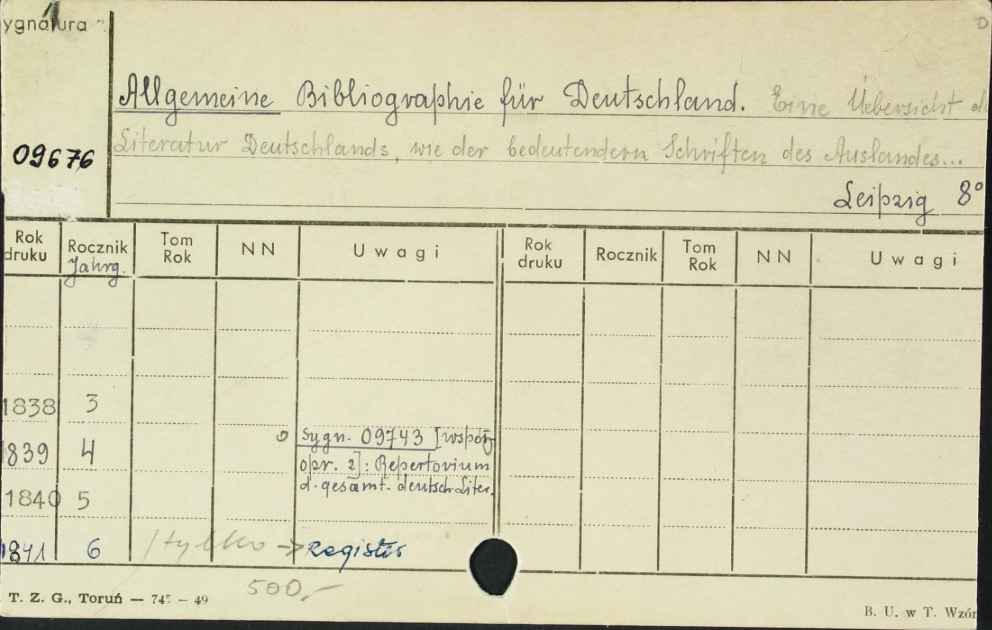 Sygnatura
D
Allgemeine Bibliographie für Deutschland. Eine Uebersicht d
Literatur Deutschlands, wie der bedeutendern Schriften des Auslandes...
09676
Leipzig 8°
Rok druku Rocznik Jahrg. Tom Rok NN Uwagi Rok druku Rocznik Tom Rok NN Uwagi
1838 3
1839 4 Sygn. 09743 [współ-
opr. z]: Repertorium
d. gesamt. deutsch. Liter.
1840 5
1841 6 /tylko → Registr
500,-
T. Z. G., Toruń — 745 — 49
B. U. w T. Wzór